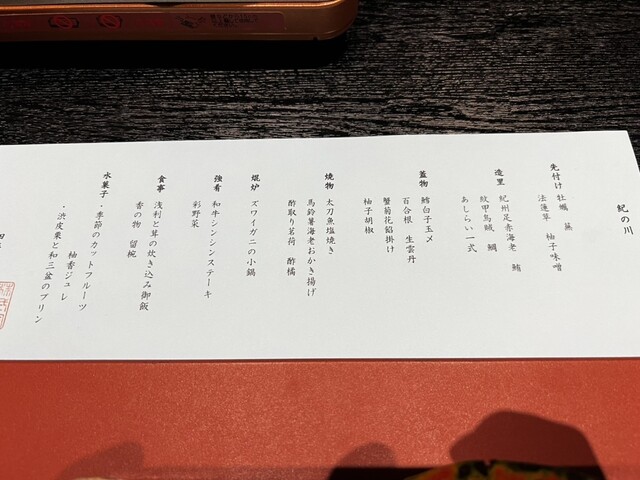 紀の川
先付け 牡蠣 蕪
法蓮草 柚子味噌
造里 紀州足赤海老 鮪
紋甲烏賊 鯛
あしらい一式
蓋物 鱈白子玉〆
百合根 生雲丹
蟹菊花餡掛け
柚子胡椒
焼物 太刀魚塩焼き
馬鈴薯海老おかき揚げ
酢取り茗荷 酢橘
焜炉 ズワイガニの小鍋
強肴 和牛シンシンステーキ
彩野菜
食事 浅利と茸の炊き込み御飯
香の物 留椀
水菓子 ・季節のカットフルーツ
柚香ジュレ
・渋皮栗と和三盆のプリン